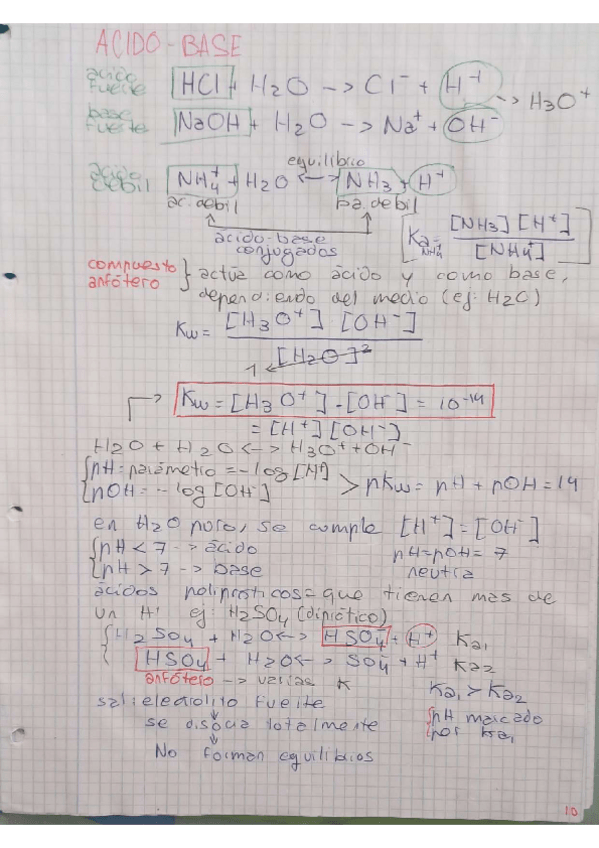 ACIDO-BASE
ácido fuerte HCl + H2O -> Cl⁻ + H⁺ -> H3O⁺
base fuerte NaOH + H2O -> Na⁺ + OH⁻
equilibrio
ácido debil NH4⁺ + H2O <-> NH3 + H⁺
ac. debil ba. debil
ácido-base conjugados
Ka NH4⁺ = [NH3] [H⁺] / [NH4⁺]
compuesto anfótero } actúa como ácido y como base,
dependiendo del medio (ej: H2O)
Kw = [H3O⁺] [OH⁻] / [H2O]²
1
Kw = [H3O⁺] · [OH⁻] = 10⁻¹⁴
= [H⁺] [OH⁻]
H2O + H2O <-> H3O⁺ + OH⁻
pH = parámetro = - log [H⁺]
pOH = - log [OH⁻] > pKw = pH + pOH = 14
en H2O pura, se cumple [H⁺] = [OH⁻]
pH < 7 -> ácido pH = pOH = 7
pH > 7 -> base neutra
ácidos polipróticos = que tienen mas de
un H⁺ ej: H2SO4 (diprótico)
H2SO4 + H2O <-> HSO4⁻ + H⁺ Ka1
HSO4⁻ + H2O <-> SO4⁻ + H⁺ Ka2
anfótero -> varias K Ka1 > Ka2
sal: electrolito fuerte pH marcado
se disocia totalmente por Ka1
No forman equilibrios
10